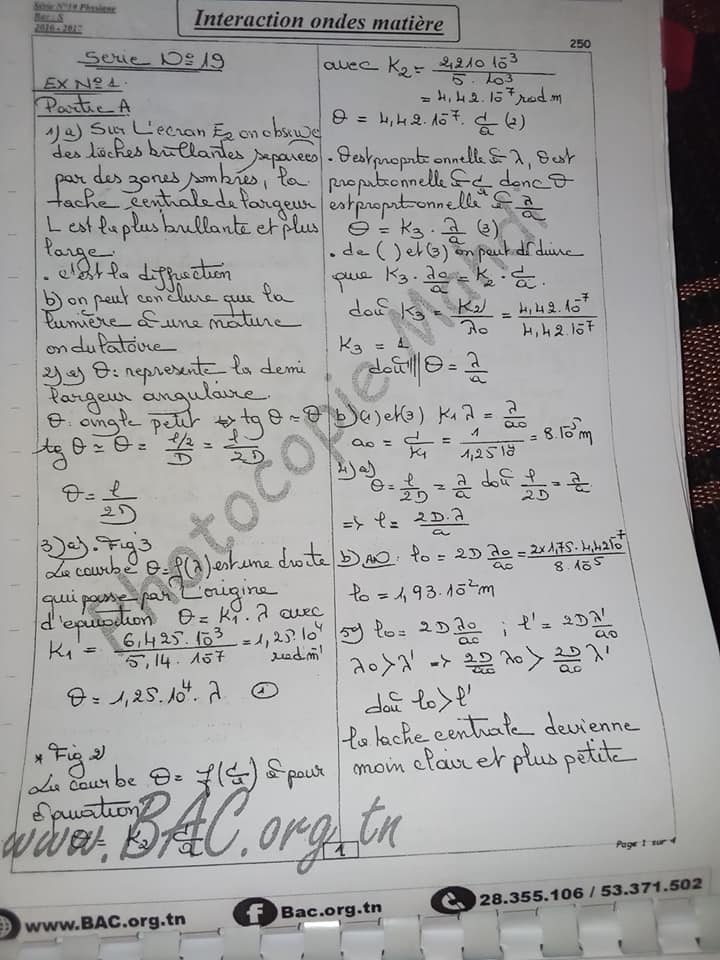 Série N°19 Physique
Bac : S
2016 - 2017
Interaction ondes matière
250
Serie N° 19
EX N°1.
Partie A
1) a) Sur l'ecran E2 on observe
des tâches brillantes separees
par des zones sombres, la
tache centrale de largeur
L est la plus brillante et plus
large.
. c'est la diffraction
b) on peut conclure que la
lumière à une nature
ondulatoire
2) a) θ: represente la demi
largeur angulaire.
θ angle petit ⇔ tg θ ≈ θ
tg θ ≈ θ = l/2 / D = l / 2D
θ = l / 2D
3) a) . Fig 3
La courbe θ = f(λ) est une droite
qui passe par l'origine
d'equation θ = K1 . λ avec
K1 = 6,425. 10^-3 / 5,14. 10^-7 = 1,25. 10^4 rad.m^-1
θ = 1,25. 10^4. λ ①
* Fig 2)
La courbe θ = f(1/a) à pour
equation
θ = K2 . 1/a
avec K2 = 2,210 10^-3 / 5. 10^3
= 4,42. 10^-7 rad.m
θ = 4,42. 10^-7. 1/a (2)
. θ est proprtionnelle à λ, θ est
proprtionnelle à 1/a donc θ
est proprtionnelle à λ/a
θ = K3 . λ/a (3)
. de ( ) et (3) on peut déduire
que K3 . λ0/a = K2 . 1/a
doù K3 = K2 / λ0 = 4,42. 10^-7 / 4,42. 10^-7
K3 = 1
doù θ = λ/a
b) (1) et (3) K1 λ = λ/a0
a0 = 1/K1 = 1 / 1,25 10^4 = 8. 10^-5 m
4) a)
θ = l/2D = λ/a doù l/2D = λ/a
=> l = 2D.λ / a
b) AN: l0 = 2D λ0/a0 = 2x1,75. 4,42 10^-7 / 8. 10^-5
l0 = 1,93. 10^-2 m
5) l0 = 2D λ0/a0 ; l' = 2D λ'/a0
λ0 > λ' => 2D/a0 λ0 > 2D/a0 λ'
doù l0 > l'
la tache centrale devienne
moin clair et plus petite
Photocopie Mahdi
www.BAC.org.tn
1
Page 1 sur 4
www.BAC.org.tn
Bac.org.tn
28.355.106 / 53.371.502